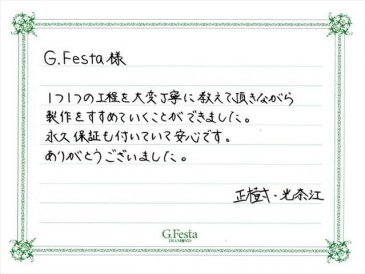 G.Festa様
1つ1つの工程を大変丁寧に教えて頂きながら
製作をすすめていくことができました。
永久保証も付いていて安心です。
ありがとうございました。
正樹・光奈江
G.Festa
DIAMOND